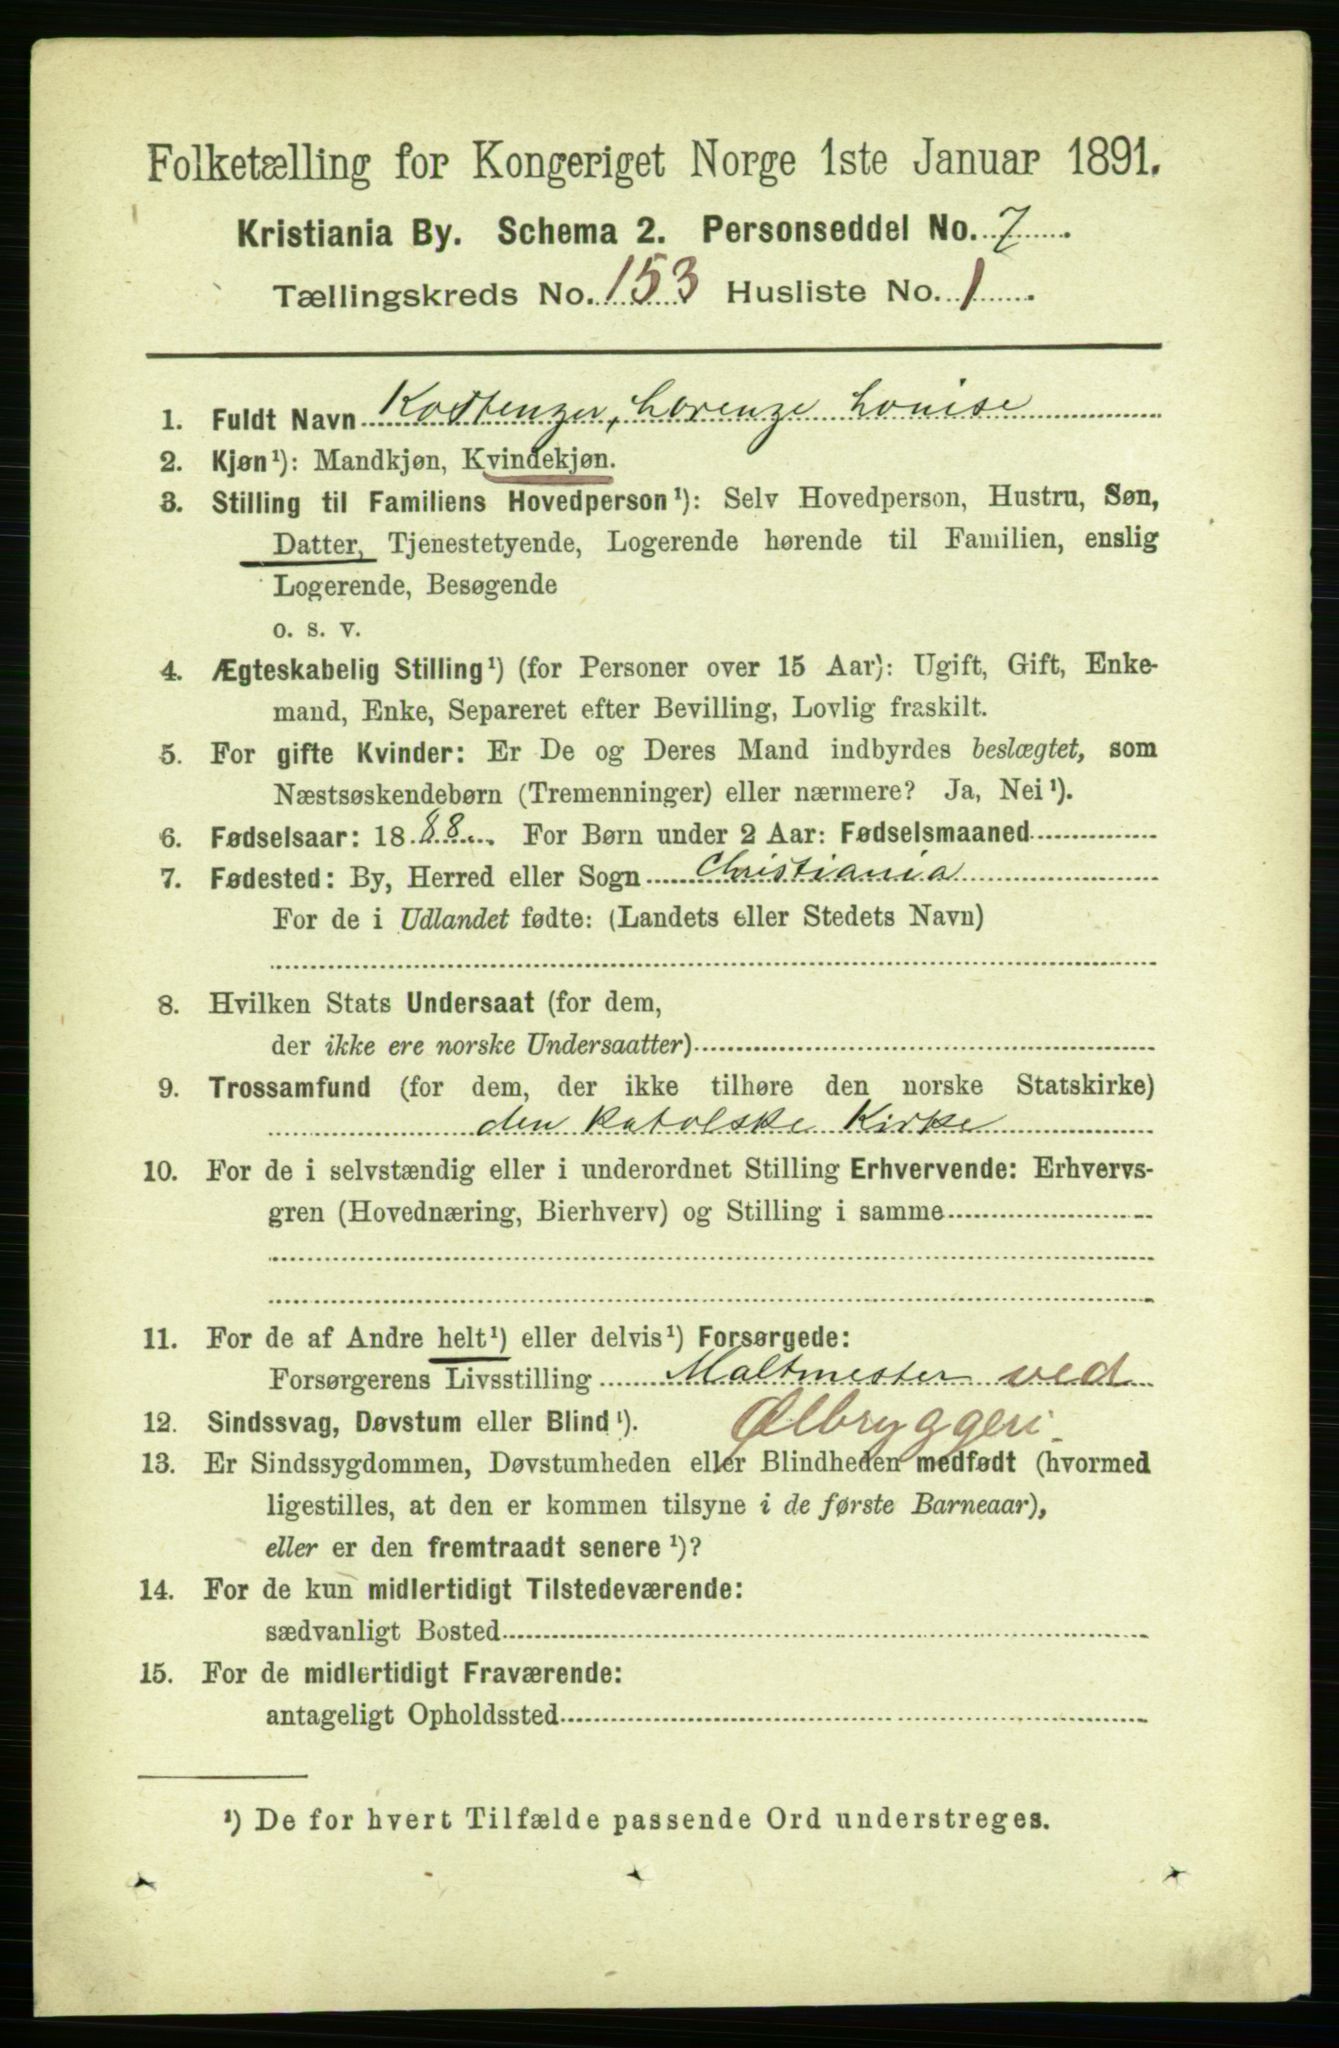 Folketælling for Kongeriget Norge 1ste Januar 1891.
Kristiania By. Schema 2. Personseddel No. 7
Tællingskreds No. 153 Husliste No. 1
1. Fuldt Navn Kostenzer, Lorenze Louise
2. Kjøn¹): Mandkjøn, Kvindekjøn.
3. Stilling til Familiens Hovedperson¹): Selv Hovedperson, Hustru, Søn,
Datter, Tjenestetyende, Logerende hørende til Familien, enslig
Logerende, Besøgende
o. s. v.
4. Ægteskabelig Stilling¹) (for Personer over 15 Aar): Ugift, Gift, Enke-
mand, Enke, Separeret efter Bevilling, Lovlig fraskilt.
5. For gifte Kvinder: Er De og Deres Mand indbyrdes beslægtet, som
Næstsøskendebørn (Tremenninger) eller nærmere? Ja, Nei¹).
6. Fødselsaar: 1888. For Børn under 2 Aar: Fødselsmaaned
7. Fødested: By, Herred eller Sogn Christiania
For de i Udlandet fødte: (Landets eller Stedets Navn)
8. Hvilken Stats Undersaat (for dem,
der ikke ere norske Undersaatter)
9. Trossamfund (for dem, der ikke tilhøre den norske Statskirke)
den katolske Kirke
10. For de i selvstændig eller i underordnet Stilling Erhvervende: Erhvervs-
gren (Hovednæring, Bierhverv) og Stilling i samme
11. For de af Andre helt¹) eller delvis¹) Forsørgede:
Forsørgerens Livsstilling Maltmester ved
12. Sindssvag, Døvstum eller Blind¹). Ølbryggeri
13. Er Sindssygdommen, Døvstumheden eller Blindheden medfødt (hvormed
ligestilles, at den er kommen tilsyne i de første Barneaar),
eller er den fremtraadt senere¹)?
14. For de kun midlertidigt Tilstedeværende:
sædvanligt Bosted
15. For de midlertidigt Fraværende:
antageligt Opholdssted
¹) De for hvert Tilfælde passende Ord understreges.